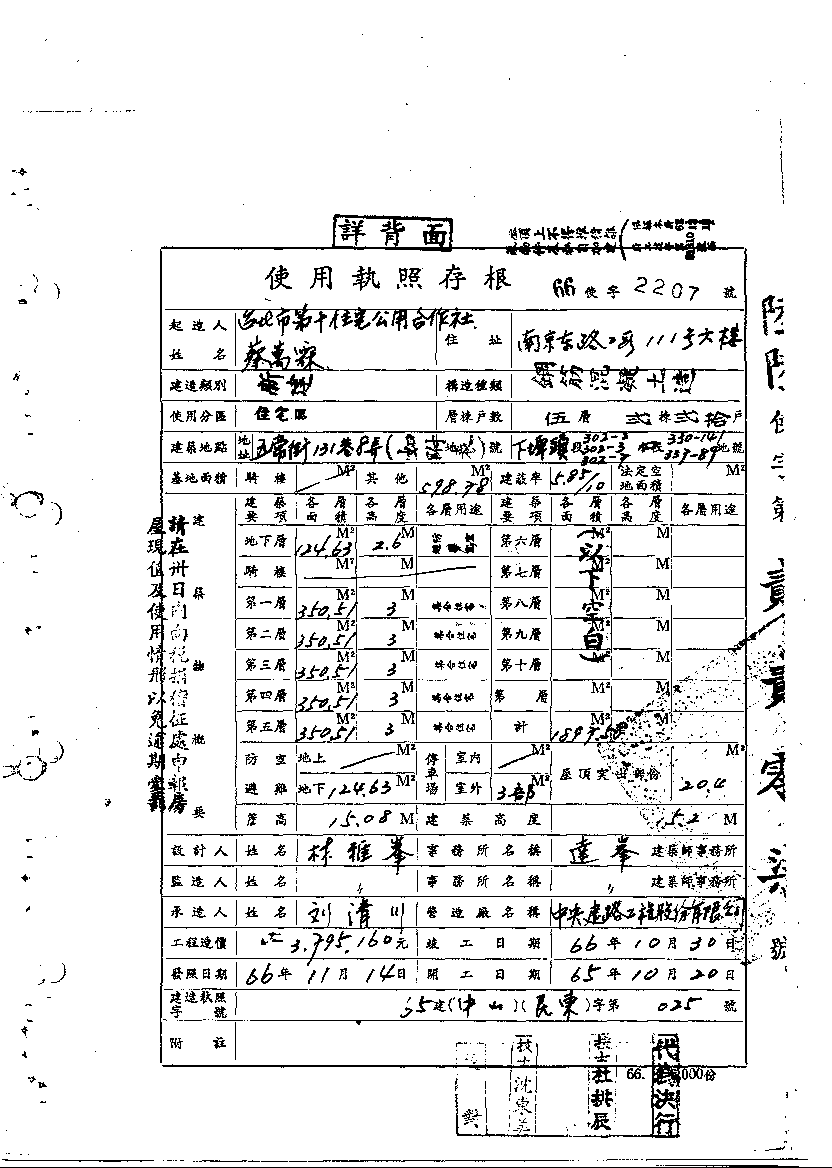 詳背面
使用執照存根
66 使字 2207 號
起造人姓名 台北市第十住宅公用合作社
住址 南京东路二段111号六樓
建造類別
構造種類 鋼筋混凝土造
使用分區 住宅區
層棟戶數 伍層 弍棟 弍拾戶
建築地點 地址 五常街131巷8弄( 地號)號 下埤頭段 302-3 330-141 339-89 地號
基地面積 騎樓 M² 其他 598.78 M² 建蔽率 5.85/10 法定空地面積 M²
建築要項 各層面積 各層高度 各層用途 建築要項 各層面積 各層高度 各層用途
地下層 124.63 M² 2.6 M 第六層 M² M
騎樓 M² M 第七層 M² M
第一層 350.51 M² 3 M 第八層 M² M
第二層 350.51 M² 3 M 第九層 M² M
第三層 350.51 M² 3 M 第十層 M² M
第四層 350.51 M² 3 M 第 層 M² M
第五層 350.51 M² 3 M 計
(以下空白)
防空避難 地上 M² 停車場 室內 M² 屋頂突出部份 20.4 M²
地下 124.63 M² 室外 3部 M²
簷高 15.08 M 建築高度 15.2 M
設計人 姓名 林雅峯 事務所名稱 達峯 建築師事務所
監造人 姓名 〃 事務所名稱 〃 建築師事務所
承造人 姓名 刘清川 營造廠名稱 中央建路工程股份有限公司
工程造價 3,795,160元 竣工日期 66年10月30日
發照日期 66年11月14日 開工日期 65年10月20日
建造執照字號 65建(中山)(民東)字第 025 號
附註
請在卅日內向稅捐稽征處申報房
屋現值及使用情形以免逾期受罰
建築物概要
技士沈東美
技士杜拱辰
代為決行
貳貳零柒號